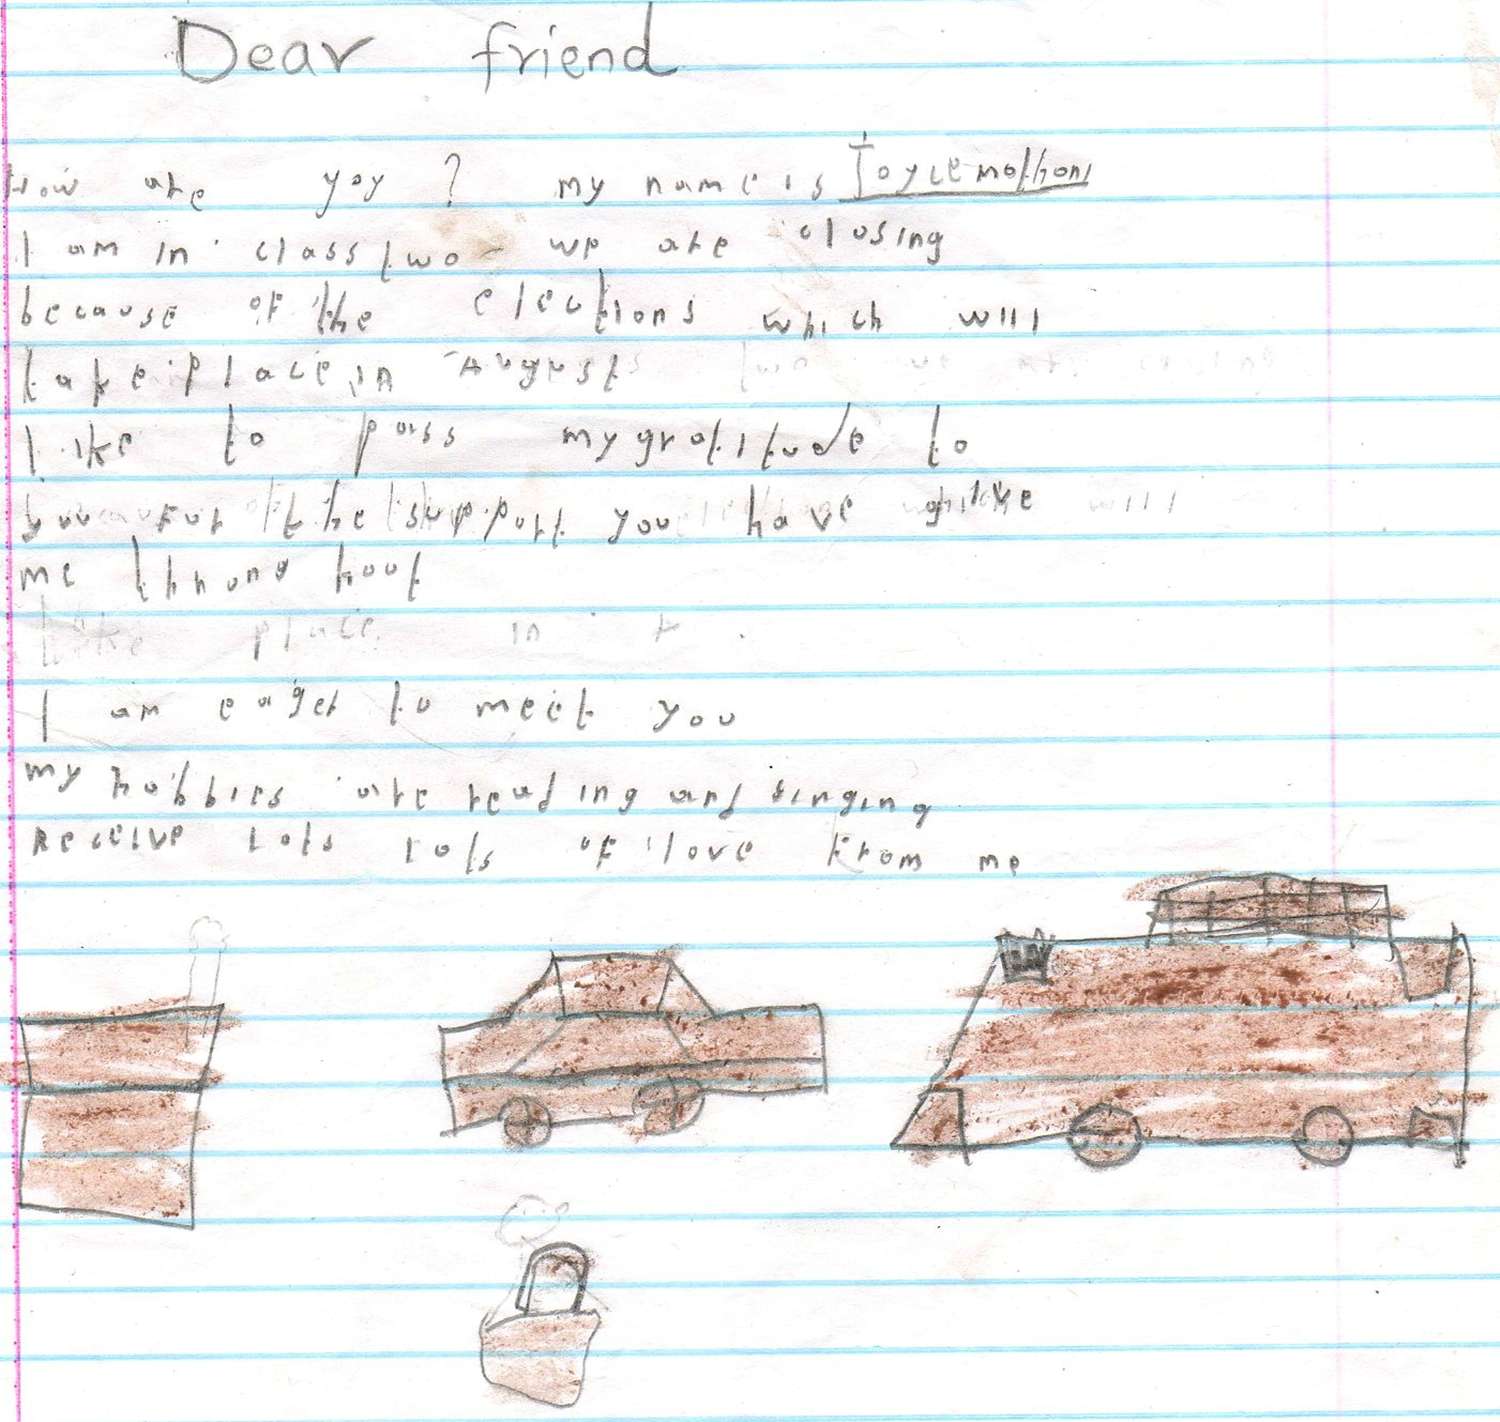 Dear friend
How are yoy ? my name is Joyce mothoni
I am in class two we are closing
because of the elections which will
take place in August
I like to pass my gratitude to
you for the support you have give
me throng hout
take place in
I am eager to meet you
my hobbies are reading and singing
Receive lots lots of love from me